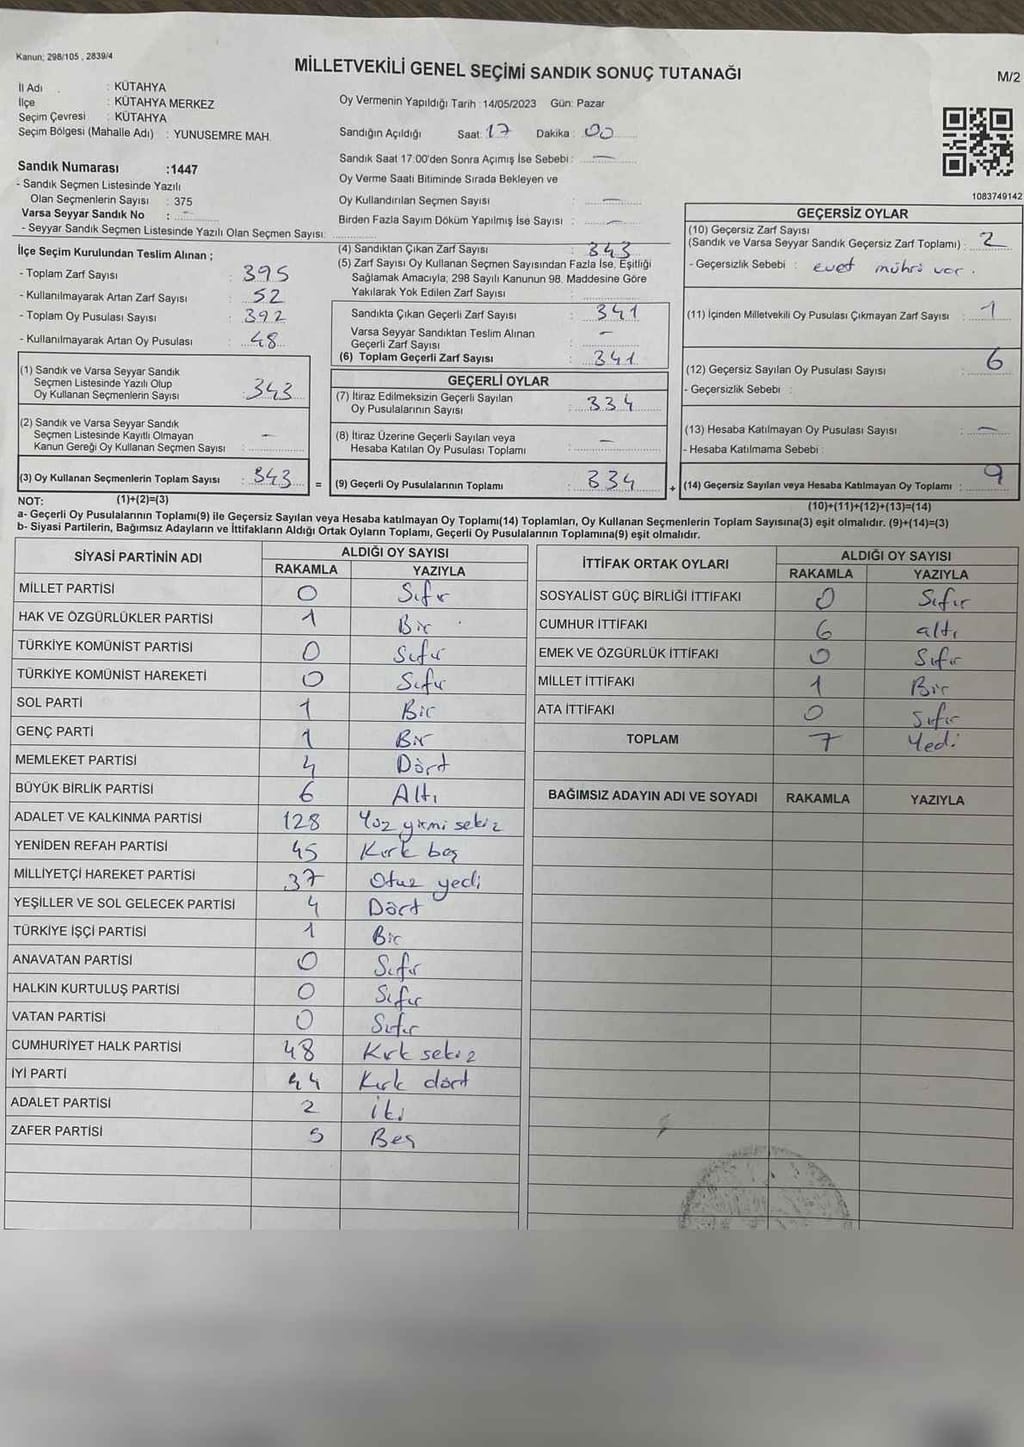 Kanun; 298/105 , 2839/4
MİLLETVEKİLİ GENEL SEÇİMİ SANDIK SONUÇ TUTANAĞI
M/2
İl Adı : KÜTAHYA
İlçe : KÜTAHYA MERKEZ
Seçim Çevresi : KÜTAHYA
Seçim Bölgesi (Mahalle Adı) : YUNUSEMRE MAH.
Sandık Numarası :1447
- Sandık Seçmen Listesinde Yazılı
Olan Seçmenlerin Sayısı : 375
Varsa Seyyar Sandık No : -
- Seyyar Sandık Seçmen Listesinde Yazılı Olan Seçmen Sayısı:
Oy Vermenin Yapıldığı Tarih : 14/05/2023 Gün: Pazar
Sandığın Açıldığı Saat: 17 Dakika : 00
Sandık Saat 17:00'den Sonra Açımış İse Sebebi : -
Oy Verme Saati Bitiminde Sırada Bekleyen ve
Oy Kullandırılan Seçmen Sayısı : -
Birden Fazla Sayım Döküm Yapılmış İse Sayısı : -
1083749142
İlçe Seçim Kurulundan Teslim Alınan ;
- Toplam Zarf Sayısı : 395
- Kullanılmayarak Artan Zarf Sayısı : 52
- Toplam Oy Pusulası Sayısı : 392
- Kullanılmayarak Artan Oy Pusulası : 48
(1) Sandık ve Varsa Seyyar Sandık
Seçmen Listesinde Yazılı Olup
Oy Kullanan Seçmenlerin Sayısı : 343
(2) Sandık ve Varsa Seyyar Sandık
Seçmen Listesinde Kayıtlı Olmayan
Kanun Gereği Oy Kullanan Seçmen Sayısı : -
(3) Oy Kullanan Seçmenlerin Toplam Sayısı : 343 =
(4) Sandıktan Çıkan Zarf Sayısı : 343
(5) Zarf Sayısı Oy Kullanan Seçmen Sayısından Fazla İse, Eşitliği
Sağlamak Amacıyla; 298 Sayılı Kanunun 98. Maddesine Göre
Yakılarak Yok Edilen Zarf Sayısı :
Sandıkta Çıkan Geçerli Zarf Sayısı : 341
Varsa Seyyar Sandıktan Teslim Alınan
Geçerli Zarf Sayısı : -
(6) Toplam Geçerli Zarf Sayısı : 341
GEÇERLİ OYLAR
(7) İtiraz Edilmeksizin Geçerli Sayılan
Oy Pusulalarının Sayısı : 334
(8) İtiraz Üzerine Geçerli Sayılan veya
Hesaba Katılan Oy Pusulası Toplamı : -
(9) Geçerli Oy Pusulalarının Toplamı : 334 +
GEÇERSİZ OYLAR
(10) Geçersiz Zarf Sayısı
(Sandık ve Varsa Seyyar Sandık Geçersiz Zarf Toplamı) : 2
- Geçersizlik Sebebi : evet mührü var.
(11) İçinden Milletvekili Oy Pusulası Çıkmayan Zarf Sayısı : 1
(12) Geçersiz Sayılan Oy Pusulası Sayısı : 6
- Geçersizlik Sebebi :
(13) Hesaba Katılmayan Oy Pusulası Sayısı : -
- Hesaba Katılmama Sebebi :
(14) Geçersiz Sayılan veya Hesaba Katılmayan Oy Toplamı : 9
NOT: (1)+(2)=(3)
(10)+(11)+(12)+(13)=(14)
a- Geçerli Oy Pusulalarının Toplamı(9) ile Geçersiz Sayılan veya Hesaba katılmayan Oy Toplamı(14) Toplamları, Oy Kullanan Seçmenlerin Toplam Sayısına(3) eşit olmalıdır. (9)+(14)=(3)
b- Siyasi Partilerin, Bağımsız Adayların ve İttifakların Aldığı Ortak Oyların Toplamı, Geçerli Oy Pusulalarının Toplamına(9) eşit olmalıdır.
SİYASİ PARTİNİN ADI ALDIĞI OY SAYISI
RAKAMLA YAZIYLA
MİLLET PARTİSİ 0 Sıfır
HAK VE ÖZGÜRLÜKLER PARTİSİ 1 Bir
TÜRKİYE KOMÜNİST PARTİSİ 0 Sıfır
TÜRKİYE KOMÜNİST HAREKETİ 0 Sıfır
SOL PARTİ 1 Bir
GENÇ PARTİ 1 Bir
MEMLEKET PARTİSİ 4 Dört
BÜYÜK BİRLİK PARTİSİ 6 Altı
ADALET VE KALKINMA PARTİSİ 128 Yüz yirmi sekiz
YENİDEN REFAH PARTİSİ 45 Kırk beş
MİLLİYETÇİ HAREKET PARTİSİ 37 Otuz yedi
YEŞİLLER VE SOL GELECEK PARTİSİ 4 Dört
TÜRKİYE İŞÇİ PARTİSİ 1 Bir
ANAVATAN PARTİSİ 0 Sıfır
HALKIN KURTULUŞ PARTİSİ 0 Sıfır
VATAN PARTİSİ 0 Sıfır
CUMHURİYET HALK PARTİSİ 48 Kırk sekiz
İYİ PARTİ 44 Kırk dört
ADALET PARTİSİ 2 iki
ZAFER PARTİSİ 5 Beş
İTTİFAK ORTAK OYLARI ALDIĞI OY SAYISI
RAKAMLA YAZIYLA
SOSYALİST GÜÇ BİRLİĞİ İTTİFAKI 0 Sıfır
CUMHUR İTTİFAKI 6 altı
EMEK VE ÖZGÜRLÜK İTTİFAKI 0 Sıfır
MİLLET İTTİFAKI 1 Bir
ATA İTTİFAKI 0 Sıfır
TOPLAM 7 Yedi
BAĞIMSIZ ADAYIN ADI VE SOYADI RAKAMLA YAZIYLA